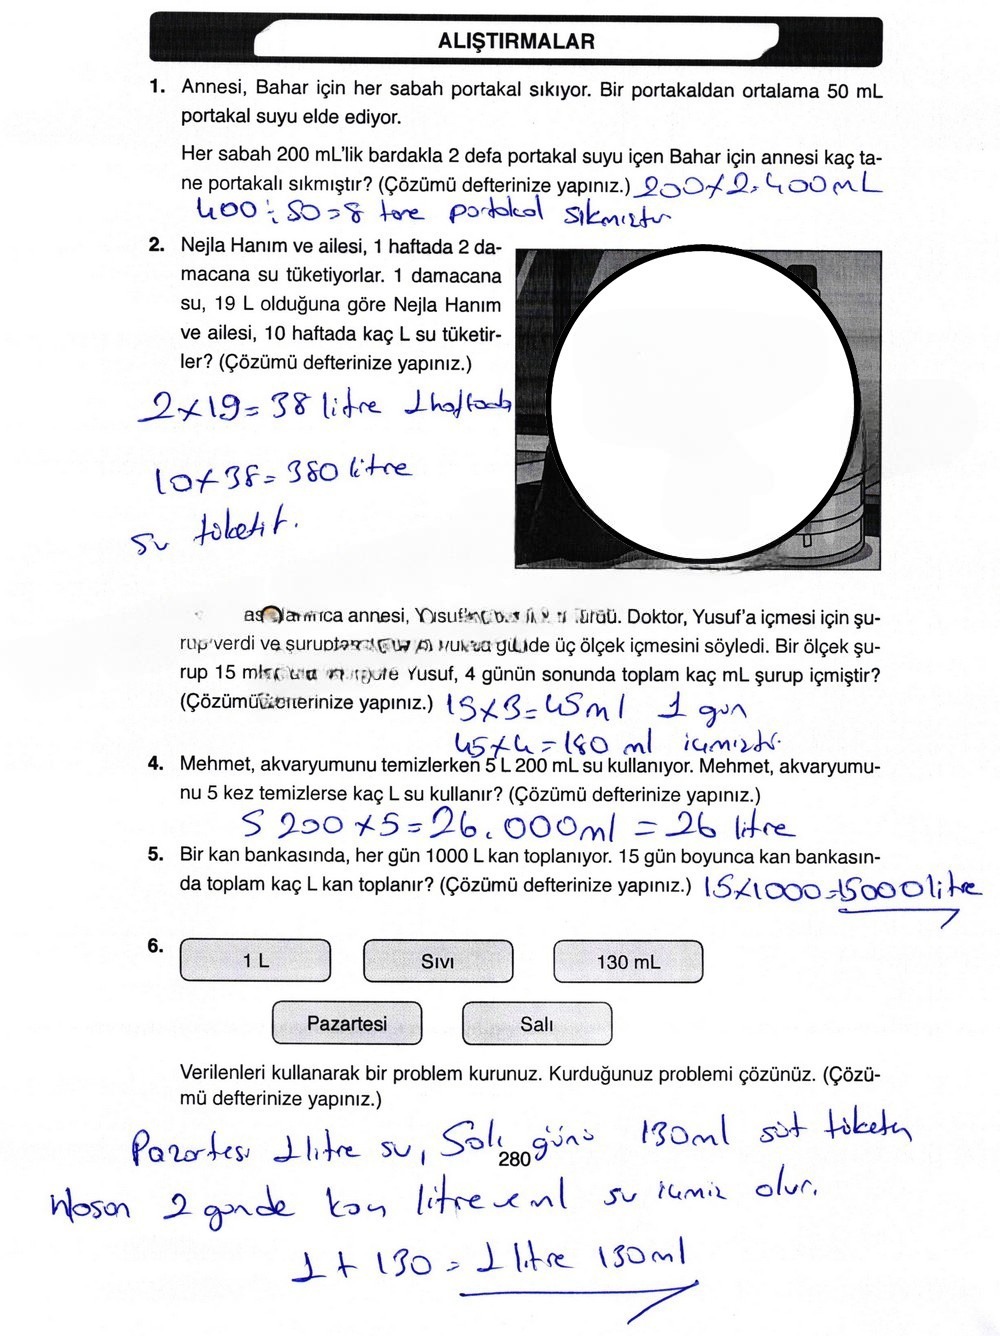 ALIŞTIRMALAR
1. Annesi, Bahar için her sabah portakal sıkıyor. Bir portakaldan ortalama 50 mL
portakal suyu elde ediyor.
Her sabah 200 mL'lik bardakla 2 defa portakal suyu içen Bahar için annesi kaç ta-
ne portakalı sıkmıştır? (Çözümü defterinize yapınız.) 200 x 2 = 400 mL
400 ÷ 50 = 8 tane portakal sıkmıştır
2. Nejla Hanım ve ailesi, 1 haftada 2 da-
macana su tüketiyorlar. 1 damacana
su, 19 L olduğuna göre Nejla Hanım
ve ailesi, 10 haftada kaç L su tüketir-
ler? (Çözümü defterinize yapınız.)
2 x 19 = 38 litre 1 haftada
10 x 38 = 380 litre
su tüketir.
annesi, Doktor, Yusuf'a içmesi için şu-
verdi ve üç ölçek içmesini söyledi. Bir ölçek şu-
rup 15 Yusuf, 4 günün sonunda toplam kaç mL şurup içmiştir?
yapınız.) 15 x 3 = 45 ml 1 gün
45 x 4 = 180 ml içmiştir.
4. Mehmet, akvaryumunu temizlerken 5 L 200 mL su kullanıyor. Mehmet, akvaryumu-
nu 5 kez temizlerse kaç L su kullanır? (Çözümü defterinize yapınız.)
5 200 x 5 = 26.000 ml = 26 litre
5. Bir kan bankasında, her gün 1000 L kan toplanıyor. 15 gün boyunca kan bankasın-
da toplam kaç L kan toplanır? (Çözümü defterinize yapınız.) 15 x 1000 = 15000 litre
6. 1 L Sıvı 130 mL
Pazartesi Salı
Verilenleri kullanarak bir problem kurunuz. Kurduğunuz problemi çözünüz. (Çözü-
mü defterinize yapınız.)
Pazartesi 1 litre su, Salı günü 130 ml süt tüketen
280
Hasan 2 günde kaç litre ve ml su içmiş olur.
1 + 130 = 1 litre 130 ml